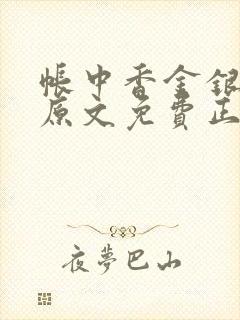 帳中香金銀
原文免費正
夜夢巴山